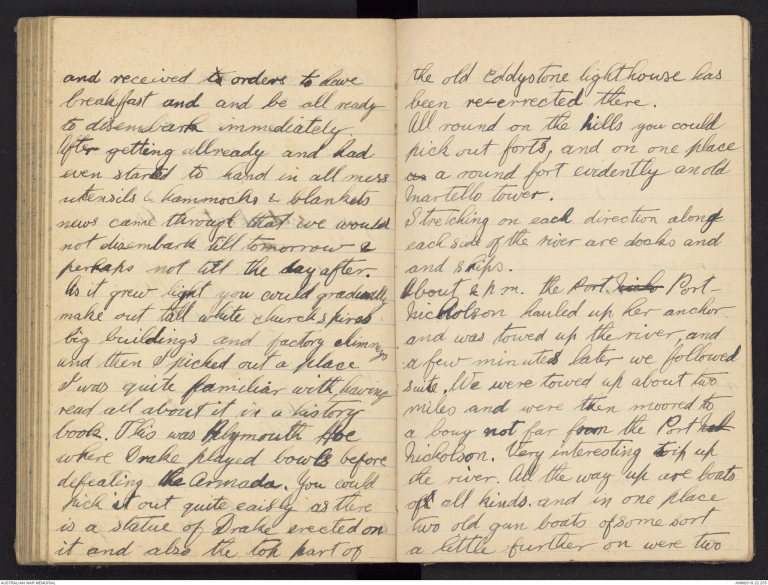 and received to orders to have
breakfast and and be all ready
to disembark immediately.
After getting allready and had
even started to hand in all mess
utensils & hammocks & blankets
news came through that we would
not disembark till tomorrow &
perhaps not till the day after.
As it grew light you could gradually
make out tall white church spires
big buildings and factory chimneys
and then I picked out a place
I was quite familiar with, having
read all about it in a history
book. This was Plymouth Hoe
where Drake played bowls before
defeating the Armada. You could
pick it out quite eaisly as there
is a statue of Drake erected on
it and also the top part of
the old Eddystone lighthouse has
been re-errected there.
All round on the hills you could
pick out forts, and on one place
as a round fort evidently an old
Martello tower.
Stretching on each direction along
each side of the river are docks and
and ships.
About 2 p.m. the Port Port-
Nicholson hauled up her anchor
and was towed up the river, and
a few minutes later we followed
suite. We were towed up about two
miles and were then moored to
a bouy not far from the Port
Nicholson. Very interesting trip up
the river. All the way up are boats
of all kinds. and in one place
two old gun boats of some sort
a little further on were two
AUSTRALIAN WAR MEMORIAL